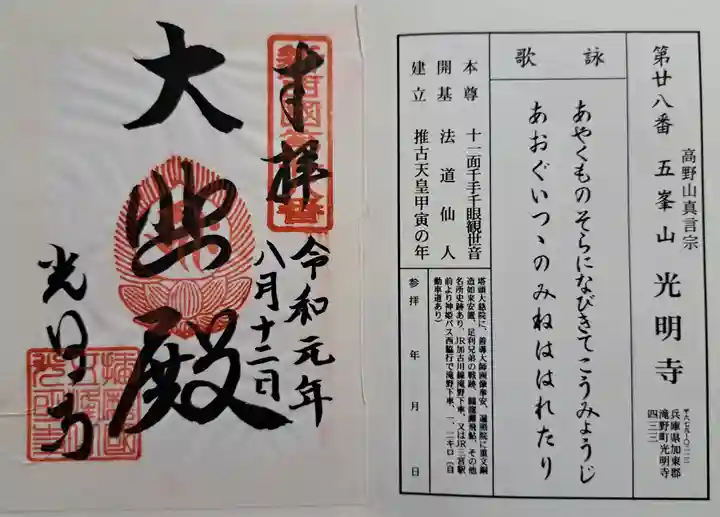 奉拝
令和元年
八月十二日
大悲殿
光明寺
第廿八番 五峯山 光明寺
高野山真言宗
兵庫県加東郡
滝野町光明寺
四三三
詠歌
あやくものそらになびきてこうみょうじ
あおぐいつゝのみねははれたり
本尊 十一面千手千眼観世音
開基 法道仙人
建立 推古天皇甲寅の年
塔頭大慈院に、善導大師画像奉安、遍照院に重文銅
造如来安置、足利兄弟の戦跡、闘龍灘飛鮎、その他
名所史跡あり、JR加古川線滝野下車、又はJR三宮駅
前より神姫バス西脇行で滝野下車、一、二キロ(自
動車道あり)
参拝 年 月 日